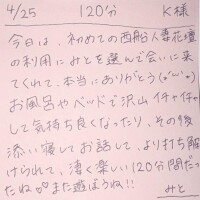 4/25 120分 K様
今日は、初めての西船人妻花壇
の利用にみとを選んで会いに来
てくれて、本当にありがとう(*´ω`*)
お風呂やベッドで沢山イチャイチャ
して気持ち良くなったり、その後
添い寝してお話して、より打ち解
けられて、凄く楽しい120分間だっ
たね♡また遊ぼうね!!
みと